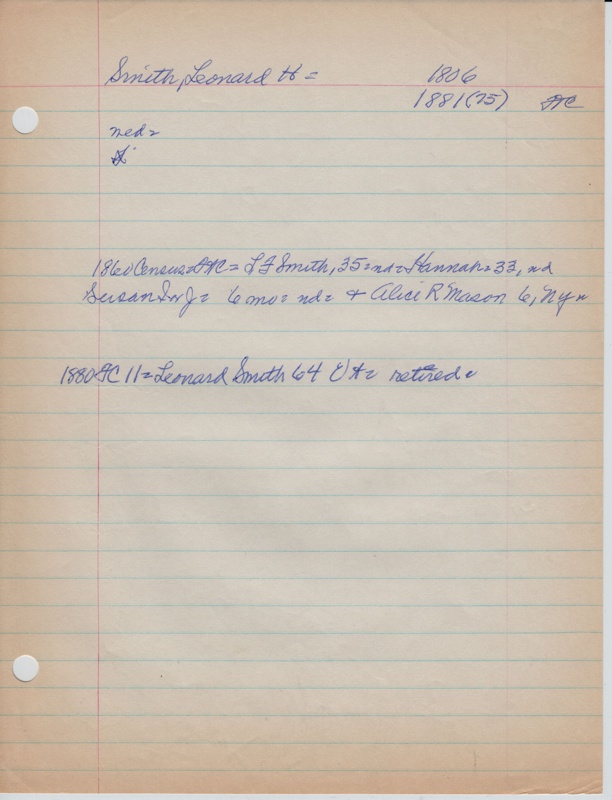 Smith, Leonard H = 1806
1881(75) FC
med=
1860 Census = FC = L F Smith, 35 = nd = Hannah = 33, nd
Susan I or J = 6 mo = nd = + Alice R Mason 6, Ny =
1880 FC 11 = Leonard Smith 64 Vt = retired =